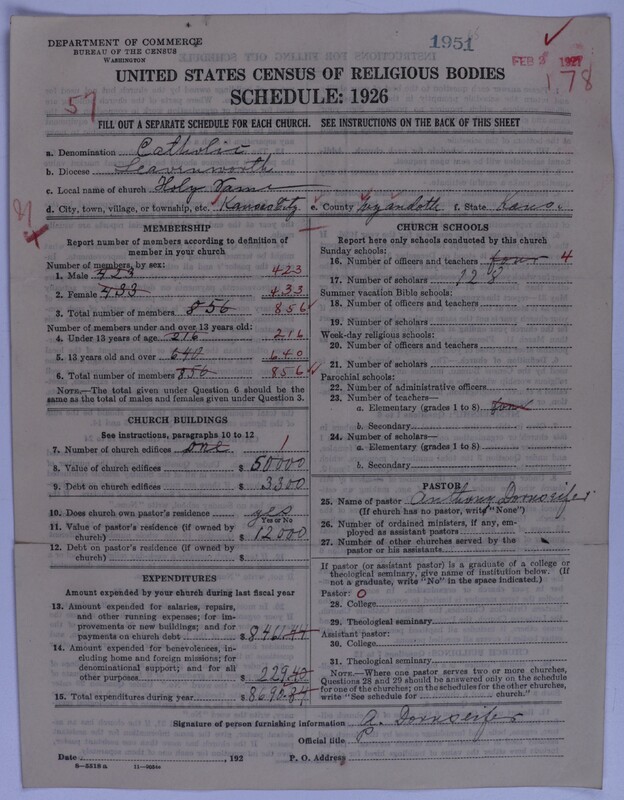 DEPARTMENT OF COMMERCE
BUREAU OF THE CENSUS
WASHINGTON
1951
FEB 2 1927
1.78
57
UNITED STATES CENSUS OF RELIGIOUS BODIES
SCHEDULE: 1926
FILL OUT A SEPARATE SCHEDULE FOR EACH CHURCH. SEE INSTRUCTIONS ON THE BACK OF THIS SHEET
a. Denomination Catholic
b. Diocese Leavenworth
c. Local name of church Holy Name
d. City, town, village, or township, etc. Kansas City. e. County Wyandoth f. State Kans.
MEMBERSHIP
Report number of members according to definition of member in your church
Number of members by sex:
1. Male 423 423
2. Female 433 433
3. Total number of members 856 856
Number of members under and over 13 years old:
4. Under 13 years of age 216 216
5. 13 years old and over 640 640
6. Total number of members 856 856
NOTE.—The total given under Question 6 should be the same as the total of males and females given under Question 3.
CHURCH BUILDINGS
See instructions, paragraphs 10 to 12
7. Number of church edifices one 1
8. Value of church edifices $ 50000
9. Debt on church edifices $ 3300
10. Does church own pastor's residence yes
Yes or No
11. Value of pastor's residence (if owned by church) $ 12000
12. Debt on pastor's residence (if owned by church) $
EXPENDITURES
Amount expended by your church during last fiscal year
13. Amount expended for salaries, repairs, and other running expenses; for improvements or new buildings; and for payments on church debt $ 8461.44
14. Amount expended for benevolences, including home and foreign missions; for denominational support; and for all other purposes $ 229.40
15. Total expenditures during year $ 8690.84
CHURCH SCHOOLS
Report here only schools conducted by this church
Sunday schools:
16. Number of officers and teachers four 4
17. Number of scholars 128
Summer vacation Bible schools:
18. Number of officers and teachers
19. Number of scholars
Week-day religious schools:
20. Number of officers and teachers
21. Number of scholars
Parochial schools:
22. Number of administrative officers
23. Number of teachers—
a. Elementary (grades 1 to 8) four
b. Secondary
24. Number of scholars—
a. Elementary (grades 1 to 8)
b. Secondary
PASTOR
25. Name of pastor Anthony Domseifer
(If church has no pastor, write "None")
26. Number of ordained ministers, if any, employed as assistant pastors
27. Number of other churches served by the pastor or his assistants
If pastor (or assistant pastor) is a graduate of a college or theological seminary, give name of institution below. (If not a graduate, write "No" in the space indicated.)
Pastor: 0
28. College
29. Theological seminary
Assistant pastor:
30. College
31. Theological seminary
NOTE.—Where one pastor serves two or more churches, Questions 28 and 29 should be answered only on the schedule for one of the churches; on the schedules for the other churches, write "See schedule for church."
Signature of person furnishing information A. Domseifer
Official title P
Date , 192 P. O. Address
8—5518a 11—